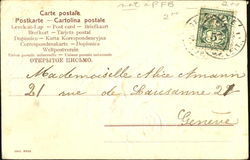 Carte postale
Postkarte - Cartolina postale
Levelezö-Lap - Post card - Briefkaart
Brefkort - Tarjeta postal
Dopisnice - Karta Korespondencyjna
Correspondenzkarte - Dopisnica
Weltpostverein
ОТКРЫТОЕ ПИСЬМО.
5
Mademoiselle Alice Amann
21 rue de Lausanne 21
Genève